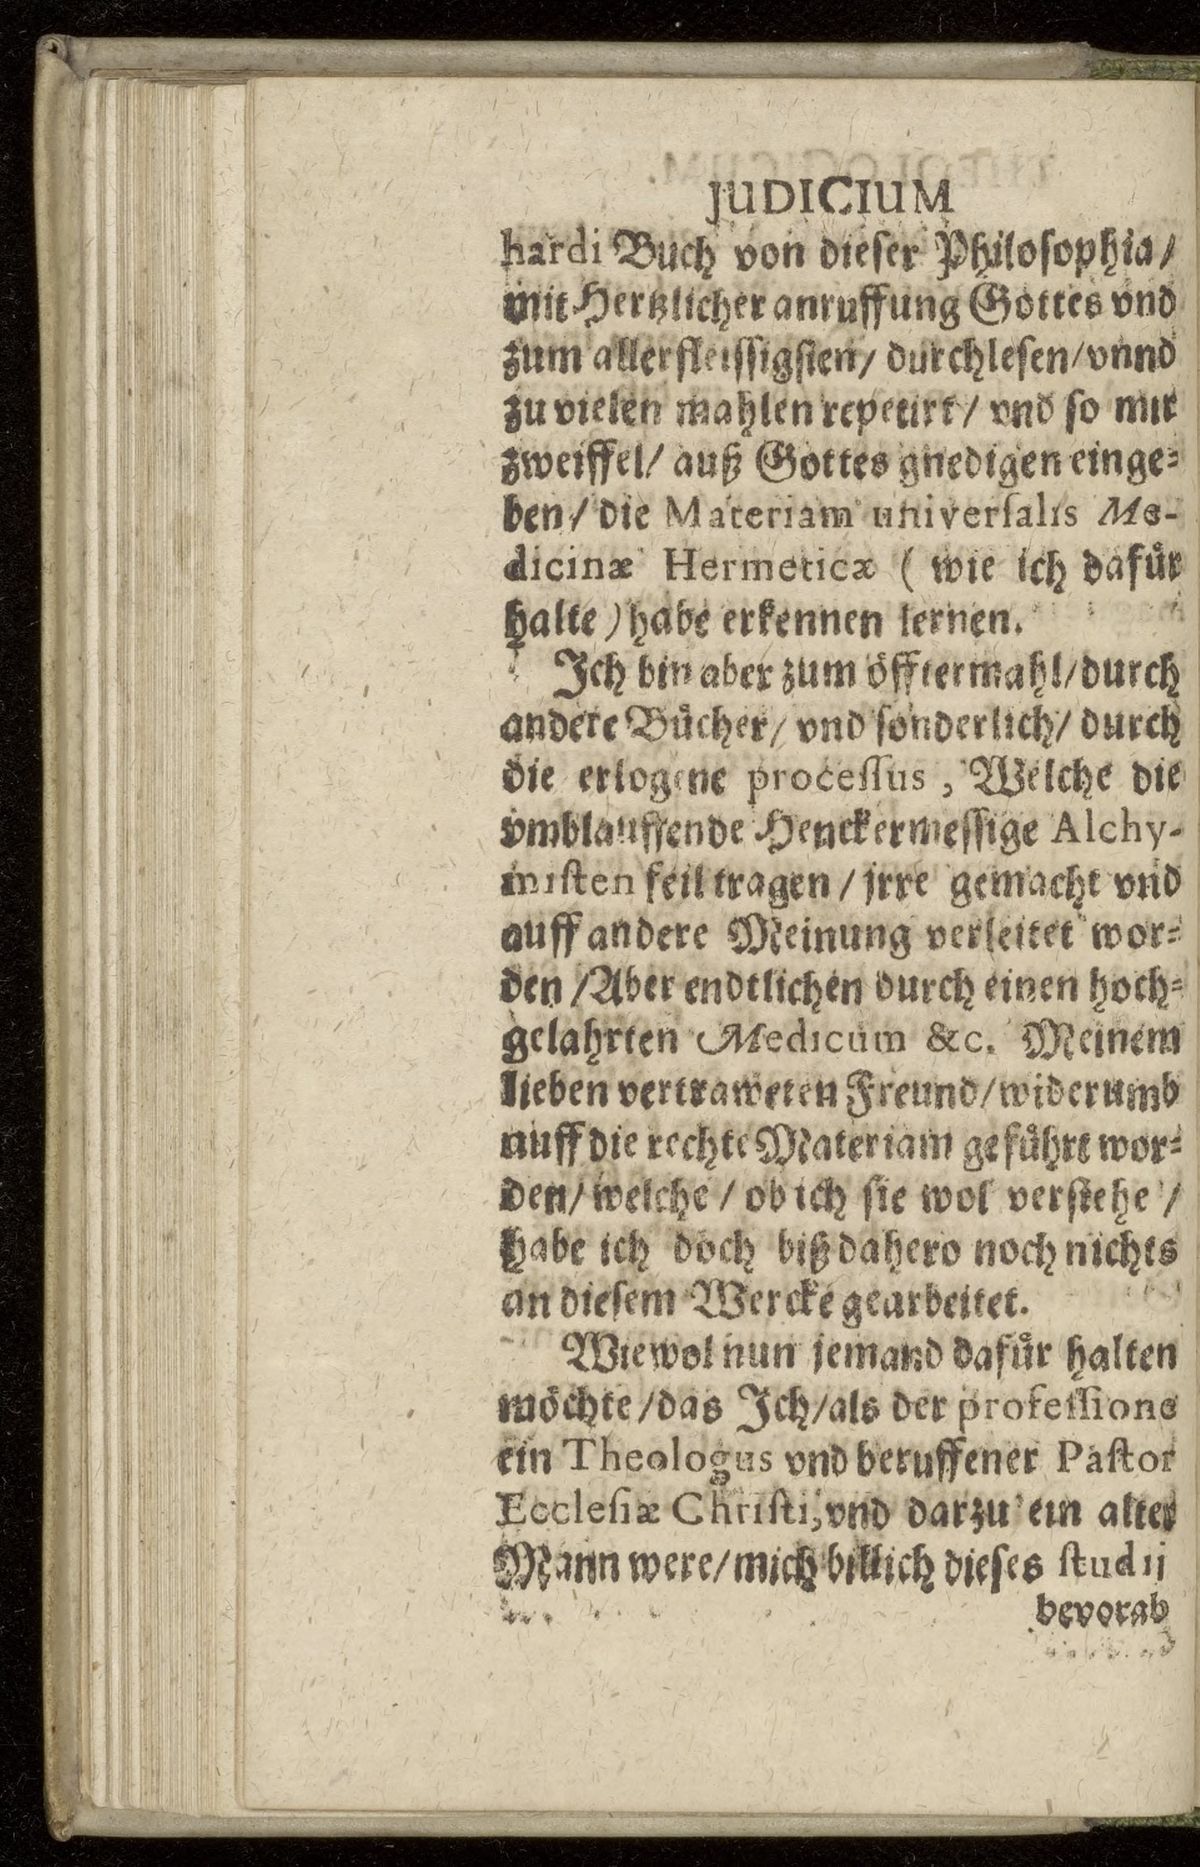 JUDICIUM
hardi Buch von dieser Philosophia /
mit Hertzlicher anruffung Gottes vnd
zum allerfleissigsten / durchlesen / vnnd
zu vielen mahlen repetirt / vnd so mir
zweiffel / auß Gottes gnedigen einge⸗
ben / die Materiam universalis Me-
dicinæ Hermeticæ ( wie ich dafür
halte ) habe erkennen lernen.
Ich bin aber zum öfftermahl / durch
andere Bücher / vnd sonderlich / durch
die erlogene processus , Welche die
vmblauffende Henckermessige Alchy-
misten feil tragen / jrre gemacht vnd
auff andere Meinung verleitet wor⸗
den / Aber endtlichen durch einen hoch⸗
gelahrten Medicum &c. Meinem
lieben vertraweten Freund / widerumb
auff die rechte Materiam geführt wor⸗
den / welche / ob ich sie wol verstehe /
habe ich doch biß dahero noch nichts
an diesem Wercke gearbeitet.
Wiewol nun jemand dafür halten
möchte / das Ich / als der professione
ein Theologus vnd beruffener Pastor
Ecclesiæ Christi, vnd darzu ein alter
Mann were / mich billich dieses studij
bevorab